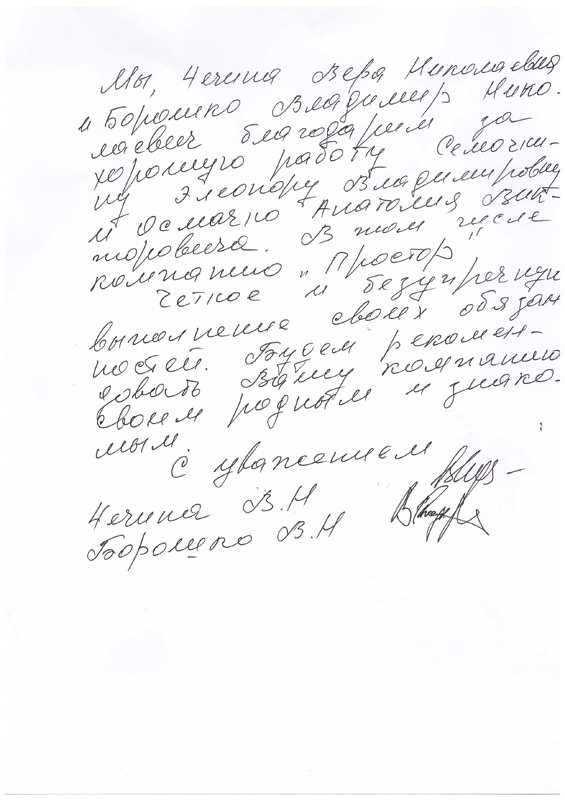 Мы, Чечина Вера Николаевна
и Борошко Владимир Нико-
лаевич благодарим за
хорошую работу Семочки-
ну Элеонору Владимировну
и Осмачко Анатолия Вик-
торовича. В том числе
компанию "Простор"
Четкое и безупречную
выполнение своих обязан
ностей. Будем рекомен-
довать Вашу компанию
своим родным и знако-
мым.
С уважением
Чечина В.Н
Борошко В.Н